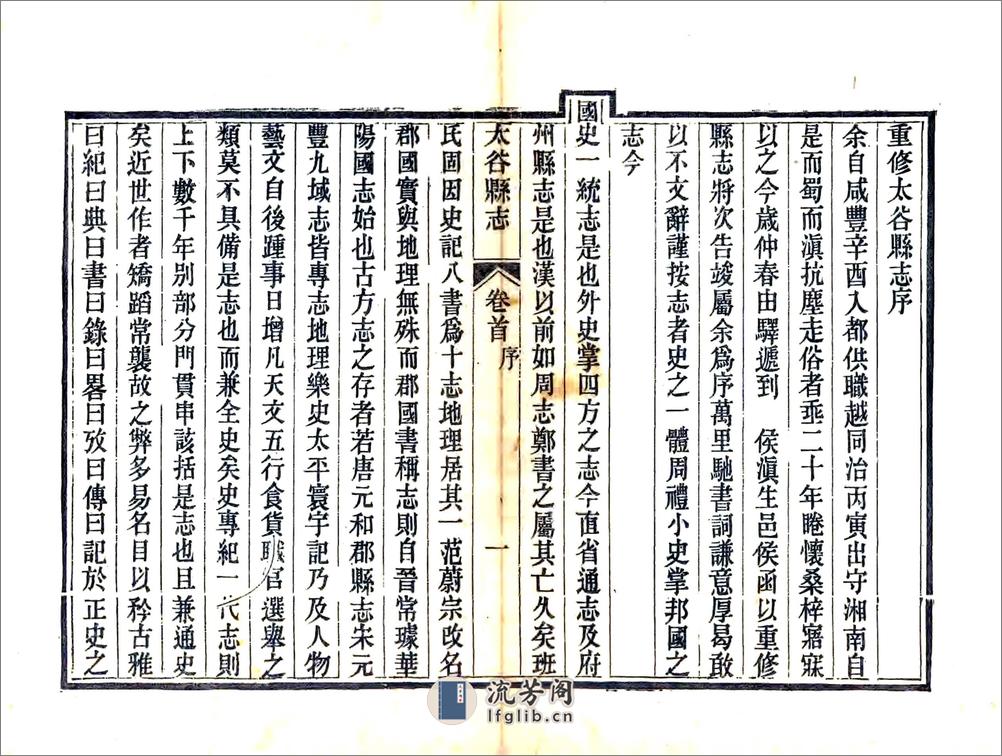 重修太谷縣志序
余自咸豐辛酉入都供職越同治丙寅出守湘南自
是而蜀而滇抗塵走俗者垂二十年睠懷桑梓寤寐
以之今歲仲春由驛遞到　侯滇生邑侯函以重修
縣志將次告竣屬余爲序萬里馳書詞謙意厚曷敢
以不文辭謹按志者史之一體周禮小史掌邦國之
志今
國史一統志是也外史掌四方之志今直省通志及府
州縣志是也漢以前如周志鄭書之屬其亡久矣班
太谷縣志 卷首 序 一
氏固因史記八書爲十志地理居其一范蔚宗改名
郡國實與地理無殊而郡國書稱志則自晉常璩華
陽國志始也古方志之存者若唐元和郡縣志宋元
豐九域志皆專志地理樂史太平寰宇記乃及人物
藝文自後踵事日增凡天文五行食貨職官選舉之
類莫不具備是志也而兼全史矣史專紀一代志則
上下數千年別部分門貫串該括是志也且兼通史
矣近世作者矯蹈常襲故之弊多易名目以矜古雅
曰紀曰典曰書曰錄曰畧曰攷曰傳曰記於正史之
流芳阁
lfglib.cn